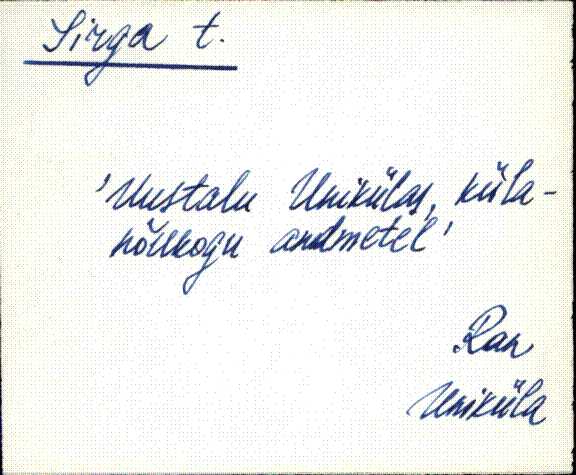 Sirga t.
'Uustalu Unikülas, küla-
nõukogu andmetel'
Ran
Uniküla